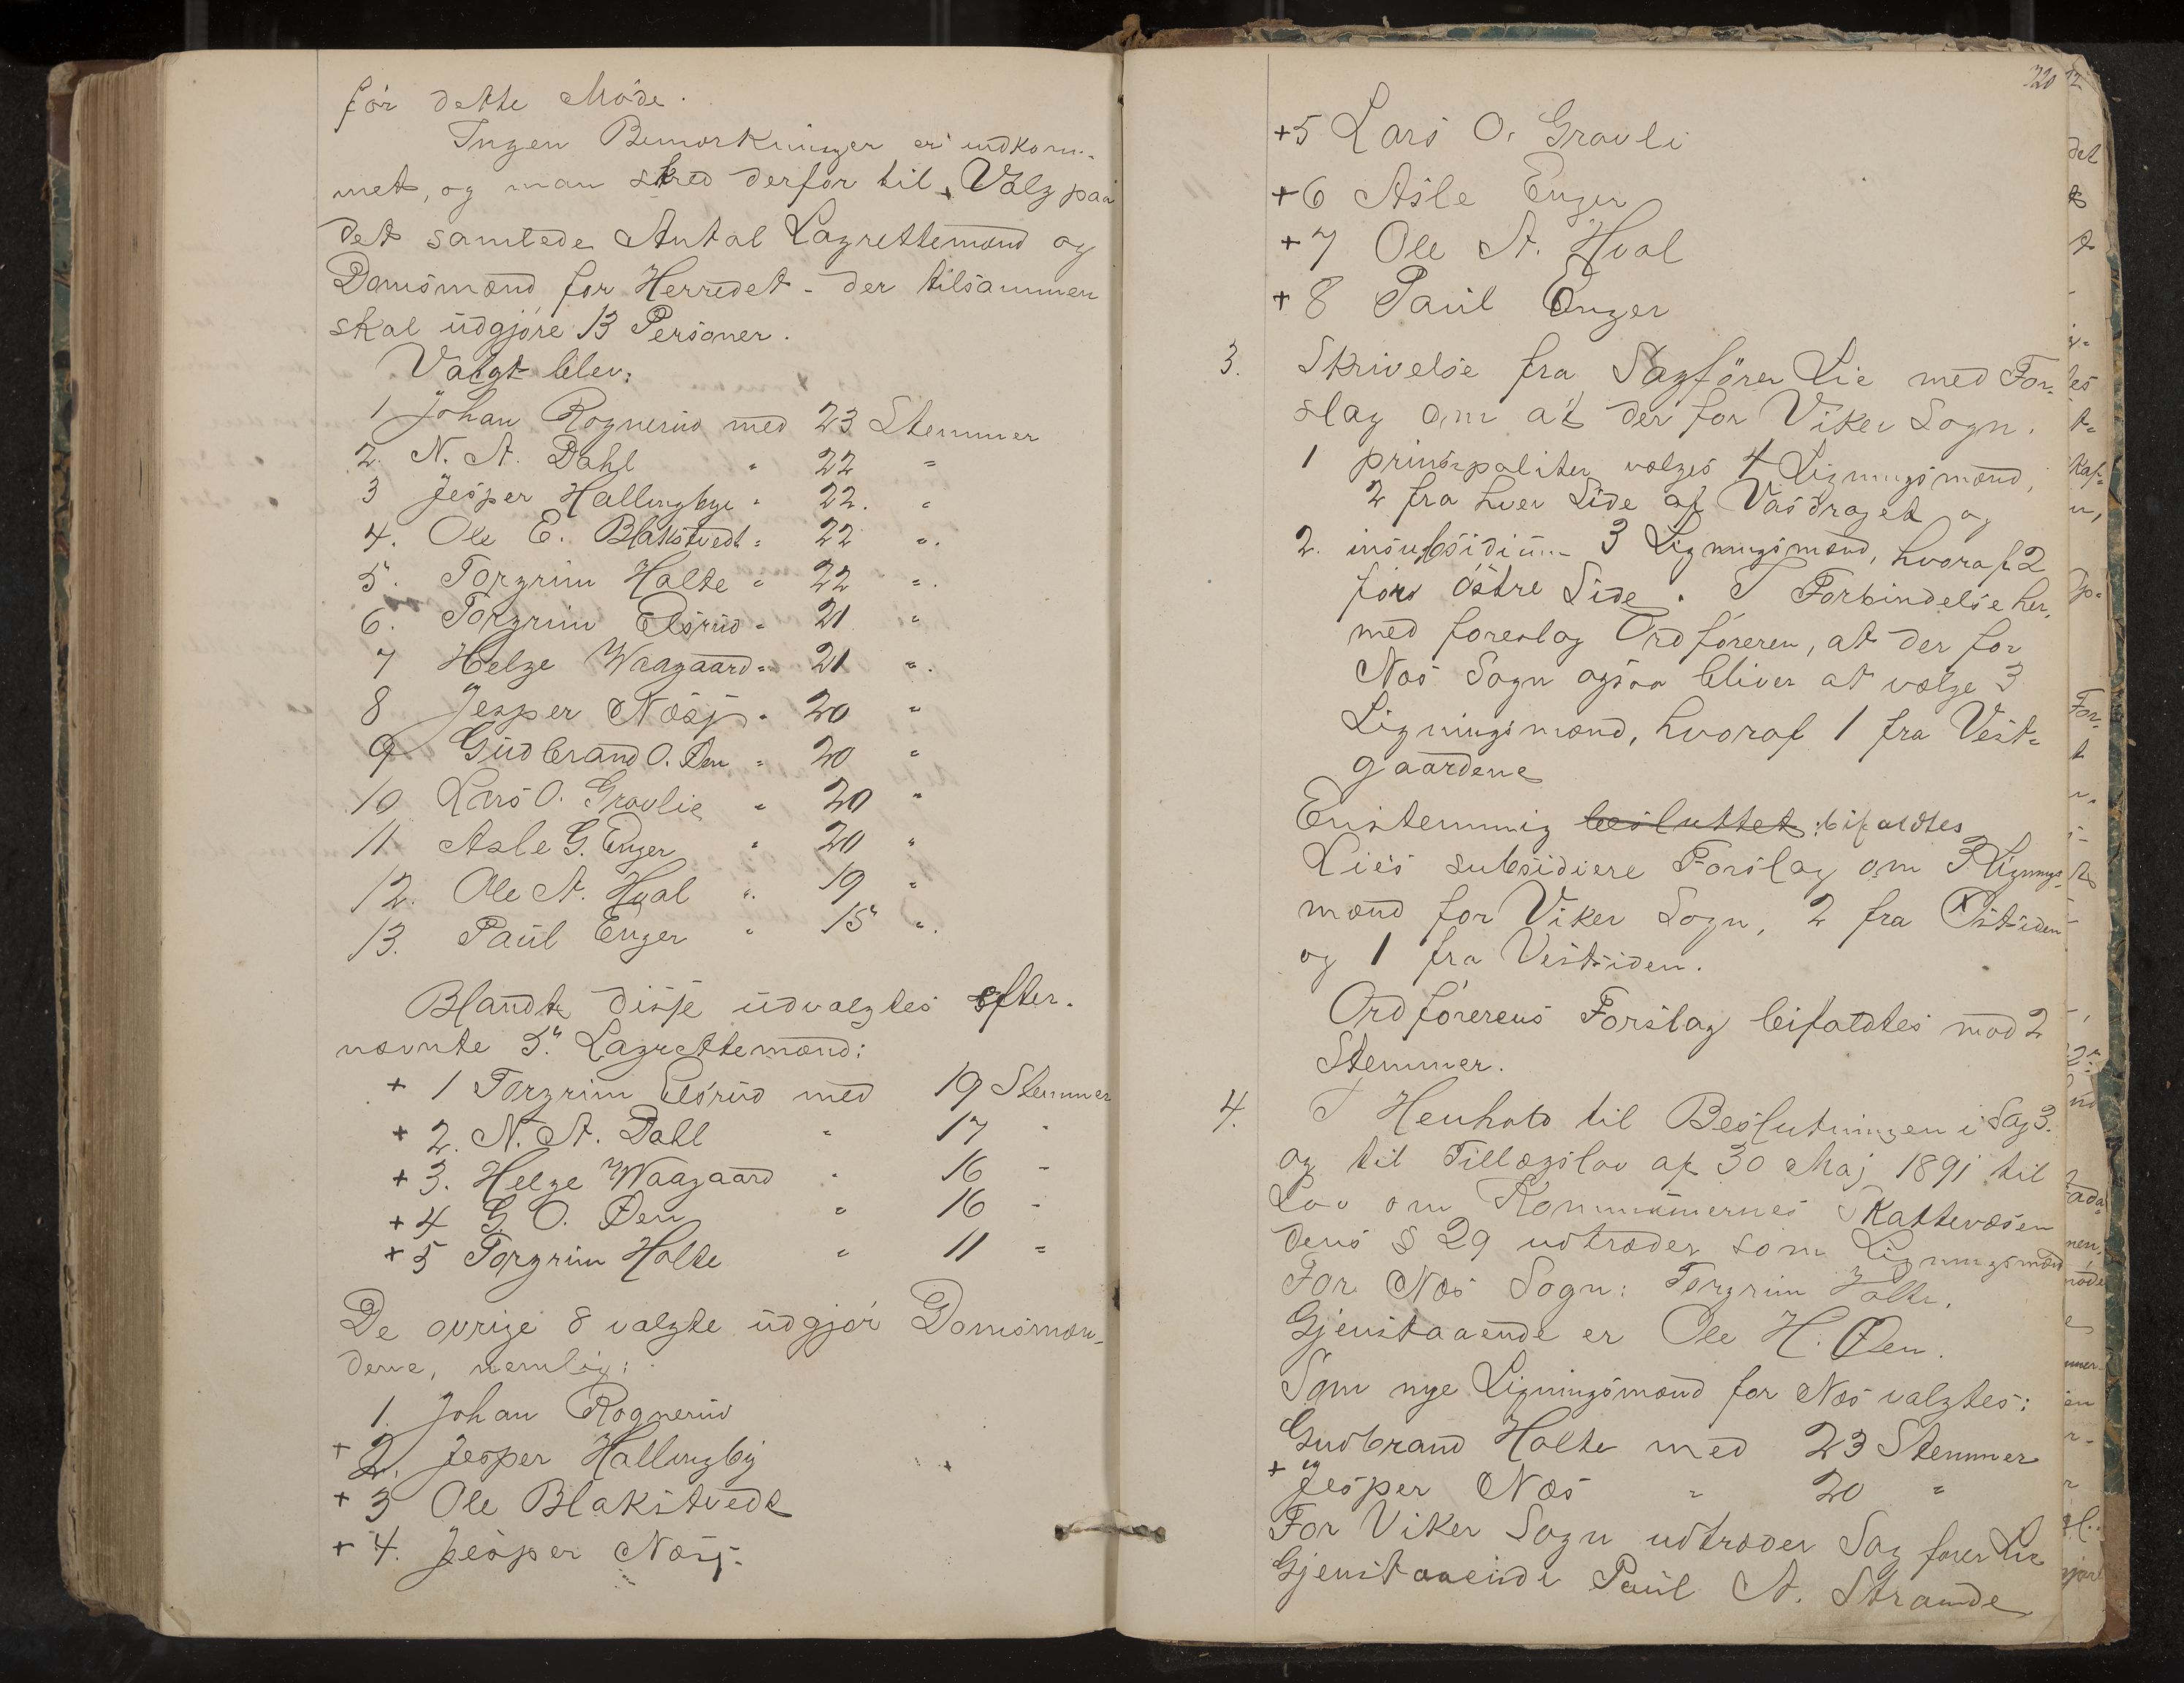 før dette Møde.
Ingen Bemærkninger er indkom-
met, og man skred derfor til Valg paa
det samlede Antal Lagrettemænd og
Domsmænd for Herredet - der tilsammen
skal udgjøre 13 Personer.
Valgt blev:
1 Johan Rognerud med 23 Stemmer
2. N. A. Dahl " 22 "
3 Jesper Hallingbye " 22. "
4. Ole E. Blakstvedt " 22 "
5. Torgrim Holte " 22 "
6. Torgrim Elsrud " 21 "
7 Helge Waagaard " 21 "
8 Jesper Næsj. " 20 "
9 Gudbrand O. Øen " 20 "
10 Lars O. Gravlie " 20 "
11 Asle G. Enger " 20 "
12. Ole A. Hval " 19 "
13. Paul Enger " 15 "
Blandt disse udvalgtes efter-
nævnte 5 Lagrettemænd:
+ 1 Torgrim Elsrud med 19 Stemmer
+ 2. N. A. Dahl " 17 "
+ 3. Helge Waagaard " 16 "
+ 4 G. O. Øen " 16 "
+ 5 Torgrim Holte " 11 "
De øvrige 8 valgte udgjør Domsmæn-
dene, nemlig:
1. Johan Rognerud
+ 2. Jesper Hallingby
+ 3 Ole Blakstvedt
+ 4. Jesper Næsj.
320
+ 5 Lars O. Gravli
+ 6 Asle Enger
+ 7 Ole A. Hval
+ 8 Paul Enger
3. Skrivelse fra Sagfører Lie med For-
slag om at der for Viker Sogn.
1 prinsipaliter vælges 4 Ligningsmænd,
2 fra hver Side af Vasdraget og
2. insubsidium 3 Ligningsmænd, hvoraf 2
for Østre Side. I Forbindelse her-
med foreslog Ordføreren, at der for
Næs Sogn ogsaa bliver at vælge 3
Ligningsmænd, hvoraf 1 fra Vest-
gaardene
Enstemmig besluttet bifaldtes
Lies subsidiere Forslag om 3 Lignings-
mænd for Viker Sogn, 2 fra Østsiden
og 1 fra Vestsiden.
Ordførerens Forslag bifaldtes mod 2
Stemmer.
4. I Henhold til Beslutningen i Sag 3.
og til Tillægslov af 30 Maj 1891 til
Lov om Kommunernes Skattevæsen
dens § 29 udtræder som Ligningsmænd
For Næs Sogn: Torgrim Holte.
Gjenstaaende er Ole H. Øen.
Som nye Ligningsmænd for Næs valgtes:
Gudbrand Holte med 23 Stemmer
+ Jesper Næs " 20 "
For Viker Sogn udtræder Sagfører Lie
Gjenstaaende Paul A. Strande